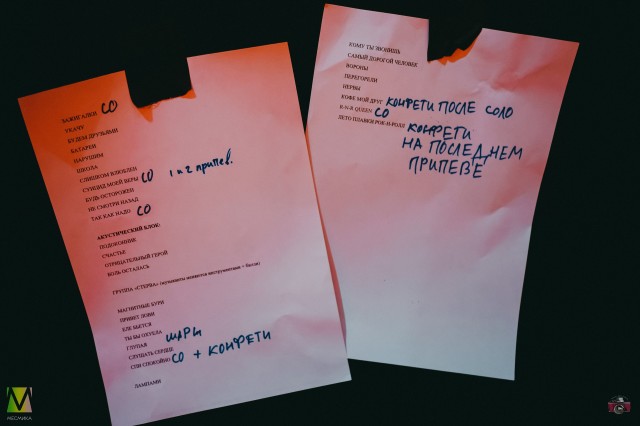 ЗАЖИГАЛКИ СО
УКАЖУ
БУДЕМ ДРУЗЬЯМИ
БАТАРЕИ
НАРУШИМ
ШКОЛА
СЛИШКОМ ВЛЮБЛЕН
СУИЦИД МОЕЙ ВЕРЫ СО 1 и 2 припев.
БУДЬ ОСТОРОЖЕН
НЕ СМОТРИ НАЗАД
ТАК КАК НАДО СО
АКУСТИЧЕСКИЙ БЛОК:
ПОДОКОННИК
СЧАСТЬЕ
ОТРИЦАТЕЛЬНЫЙ ГЕРОЙ
БОЛЬ ОСТАЛАСЬ
ГРУППА «СТЕРВА» (музыканты меняются инструментами + басом)
МАГНИТНЫЕ БУРИ
ПРИВЕТ ЛОВИ
ЕЛЕ БЬЕТСЯ
ТЫ БЫ ОХУЕЛА
ГЛУПАЯ ШАРЫ
СЛУШАТЬ СЕРДЦЕ
СПИ СПОКОЙНО СО + КОНФЕТИ
ЛАМПАМИ
КОМУ ТЫ ЗВОНИШЬ
САМЫЙ ДОРОГОЙ ЧЕЛОВЕК
ВОРОНЫ
ПЕРЕГОРЕЛИ
НЕРВЫ
КОФЕ МОЙ ДРУГ КОНФЕТИ ПОСЛЕ СОЛО
R-N-R QUEEN СО
ЛЕТО ПЛАВКИ РОК-Н-РОЛЛ КОНФЕТИ
НА ПОСЛЕДНЕМ
ПРИПЕВЕ
МЕСМИКА